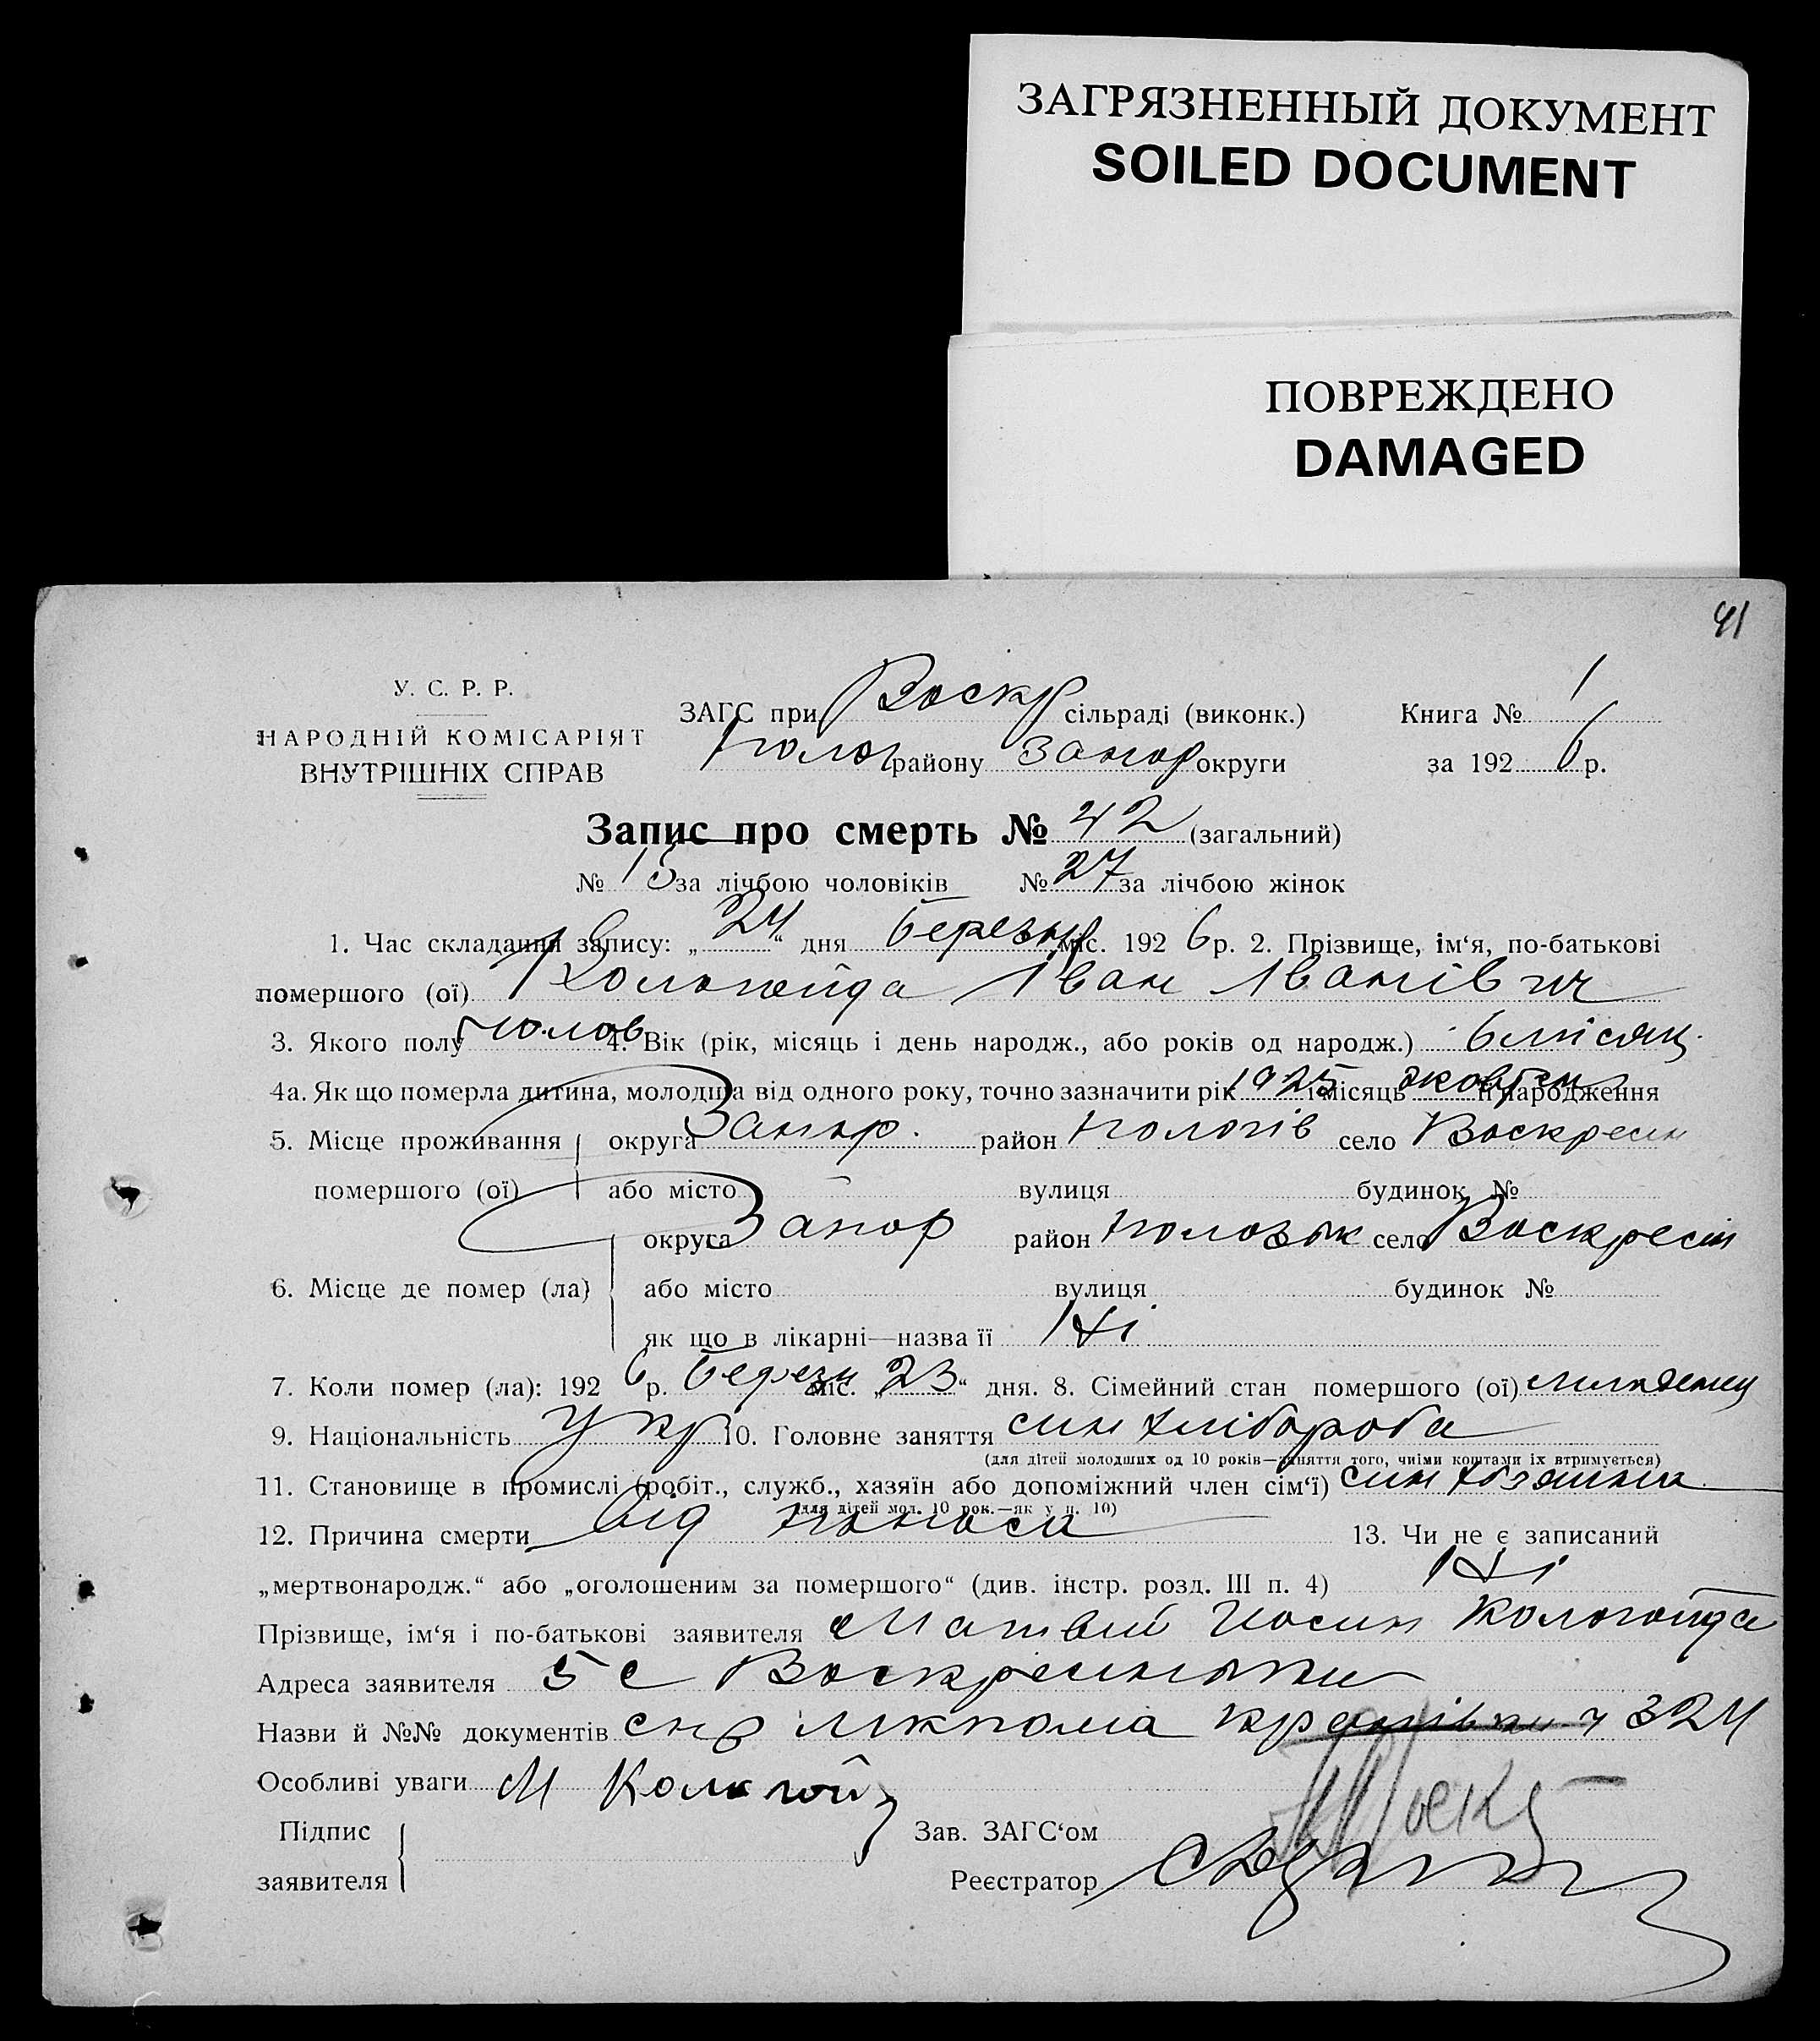 ЗАГРЯЗНЕННЫЙ ДОКУМЕНТ
SOILED DOCUMENT
ПОВРЕЖДЕНО
DAMAGED
41
У. С. Р. Р.
НАРОДНІЙ КОМІСАРІЯТ
ВНУТРІШНІХ СПРАВ
ЗАГС при Воскр сільраді (виконк.) Книга № 1
Полог району Запор округи за 1926 р.
Запис про смерть № 42 (загальний)
№ 15 за лічбою чоловіків № 27 за лічбою жінок
1. Час складання запису: „24“ дня березня міс. 1926 р. 2. Прізвище, ім‘я, по-батькові
помершого (ої) Кологойда Іван Іванівич
3. Якого полу чолов 4. Вік (рік, місяць і день народж., або років од народж.) 6 місяц.
4а. Як що померла дитина, молодша від одного року, точно зазначити рік 1925 і місяць жовтен її народження
5. Місце проживання округа Запор. район Пологів село Воскресен
помершого (ої) або місто вулиця будинок №
округа Запор район село Воскресен
6. Місце де помер (ла) або місто вулиця будинок №
як що в лікарні—назва її Ні
7. Коли помер (ла): 1926 р. березн міс. „23“ дня. 8. Сімейний стан помершого (ої) младенец
9. Національність Укр 10. Головне заняття син хлібороба
(для дітей молодших од 10 років—заняття того, чиїми коштами їх втримується)
11. Становище в промислі (робіт., служб., хазяїн або допоміжний член сім‘ї) син хозяина
(для дітей мол. 10 рок.—як у п. 10)
12. Причина смерти від поноса 13. Чи не є записаний
„мертвонародж.“ або „оголошеним за помершого“ (див. інстр. розд. III п. 4) Ні
Прізвище, ім‘я і по-батькові заявителя Матвій Иосип Кологойда
Адреса заявителя с Воскресинька
Назви й №№ документів 324
Особливі уваги М Кологой
Підпис Зав. ЗАГС‘ом
заявителя Реєстратор